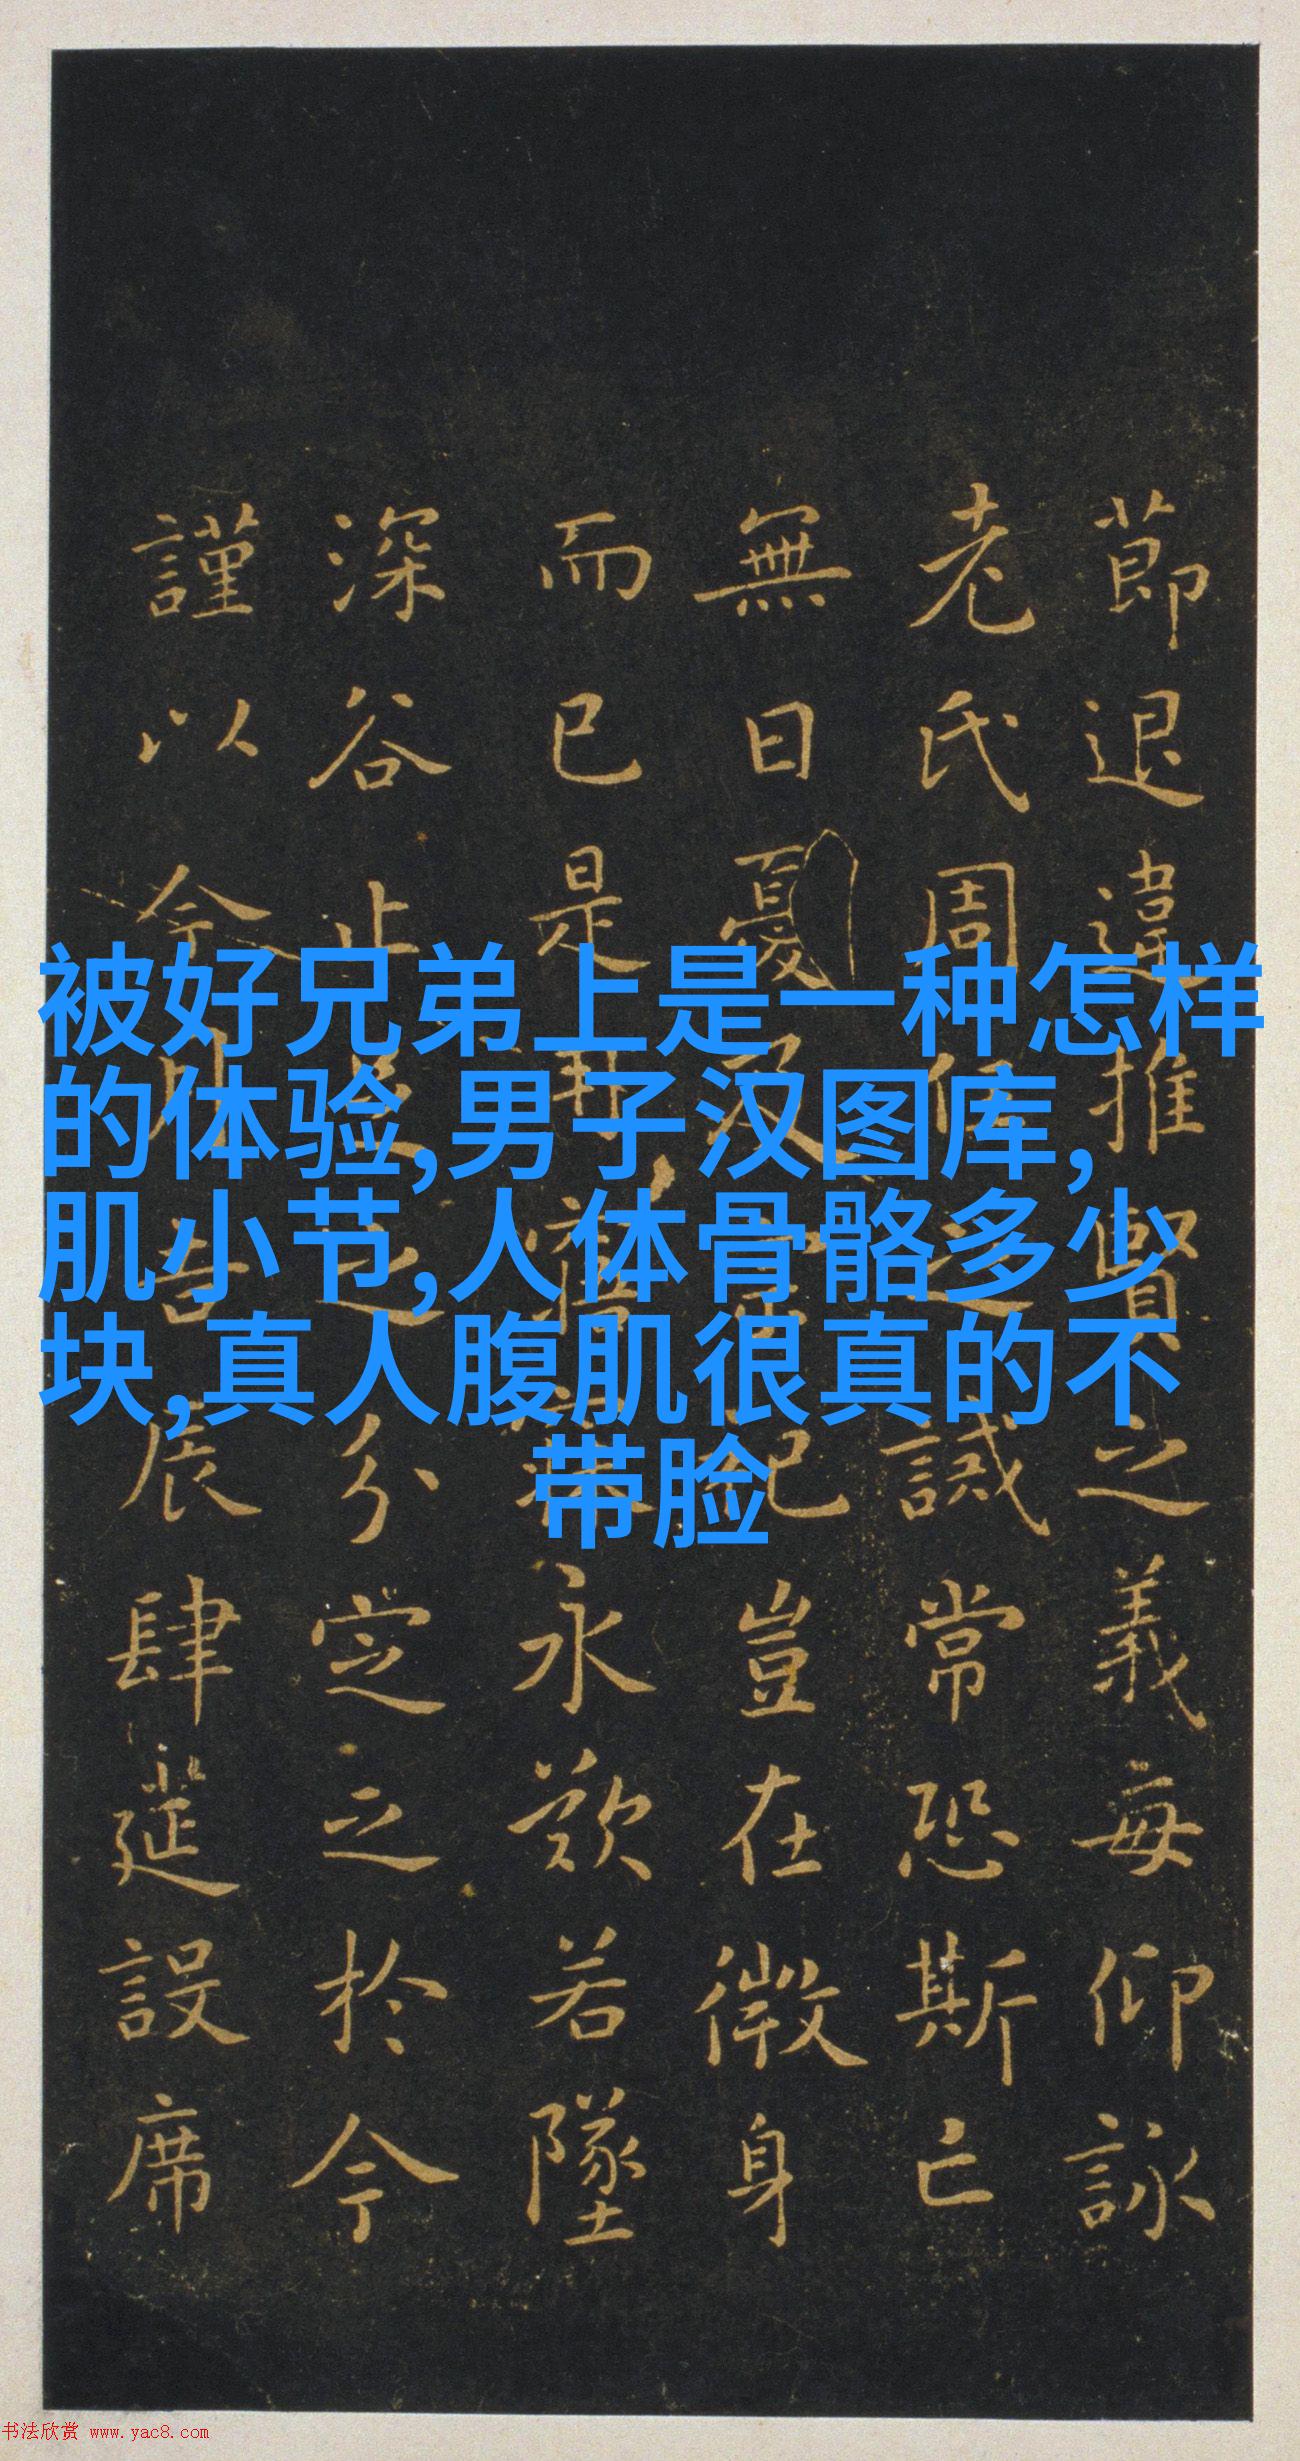 被好兄弟上是一种怎样
的体验,男子汉图库,
肌小节,人体骨骼多少
块,真人腹肌很真的不
带脸
節退違推賢之義每仰詠
老氏周任之誡常恐斯亡
無日憂及宗祀豈在微身
而已是用寤寐永歎若墜
深谷止足之分定之於今
謹以今月吉辰肆筵設席
书法欣赏 www.yac8.com